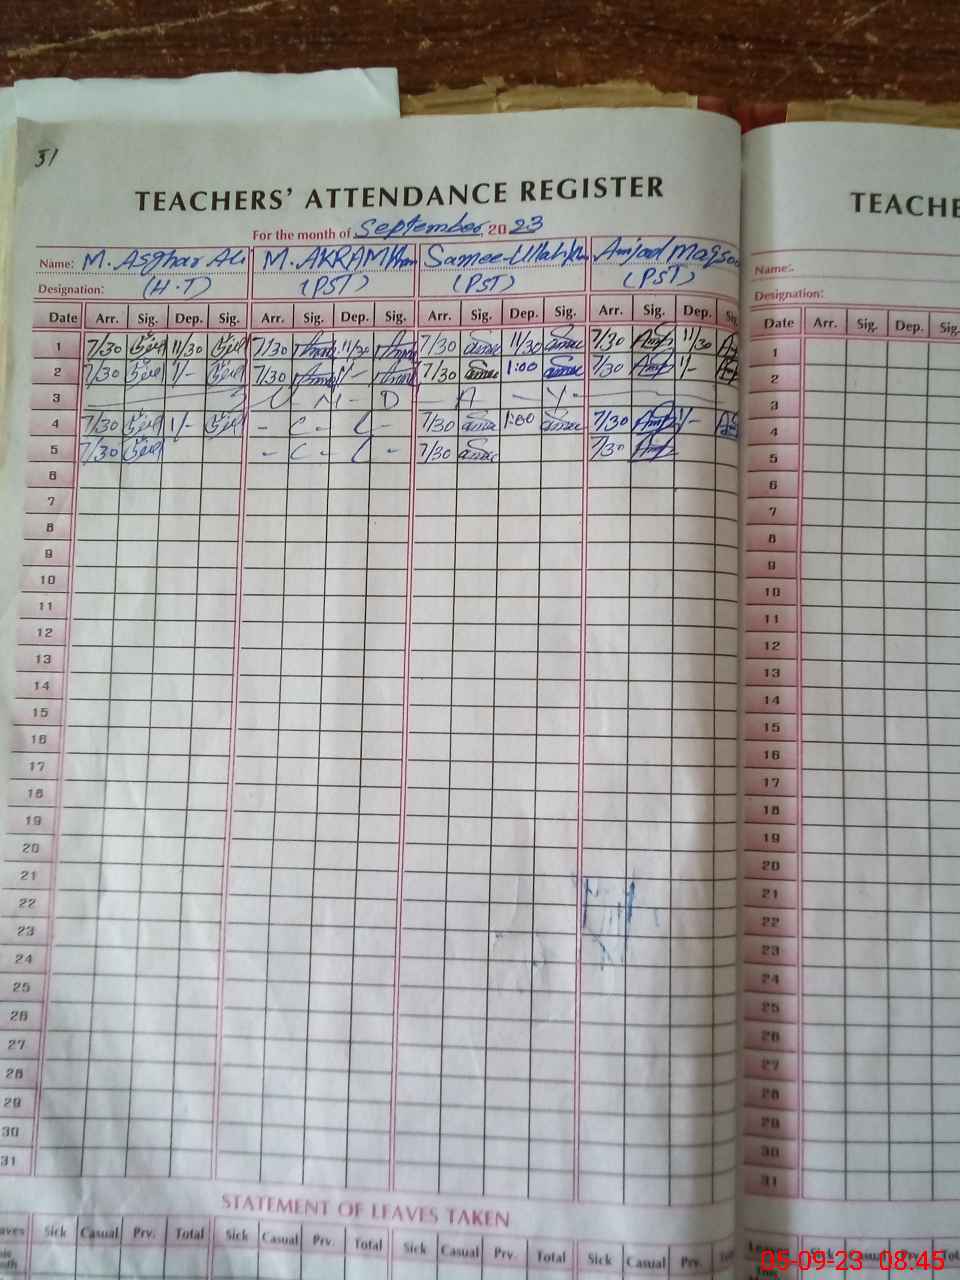 31
TEACHERS' ATTENDANCE REGISTER
For the month of September 2023
Name: M. Asghar Ali M. AKRAM Khan Samee-Ullah Khan Amjad Maqsood
Designation: (H.T) (PST) (PST) (PST)
Date Arr. Sig. Dep. Sig. Arr. Sig. Dep. Sig. Arr. Sig. Dep. Sig. Arr. Sig. Dep. Sig
1 7/30 11/30 7/30 11/30 7/30 11/30 7/30 11/30
2 7/30 1/- 7/30 1/- 7/30 1:00 7/30 1/-
3 S U N - D - A - Y -
4 7/30 1/- - C - L - 7/30 1:00 7/30 1/-
5 7/30 - C - L - 7/30 7/30
6
7
8
9
10
11
12
13
14
15
16
17
18
19
20
21
22
23
24
25
26
27
28
29
30
31
STATEMENT OF LEAVES TAKEN
eaves Sick Casual Prv. Total Sick Casual Prv. Total Sick Casual Prv. Total Sick Casual Prv.
TEACHE
Name:
Designation:
Date Arr. Sig. Dep. Sig.
1
2
3
4
5
6
7
8
9
10
11
12
13
14
15
16
17
18
19
20
21
22
23
24
25
26
27
28
29
30
31
Leaves Sick Casual Prv. Tot
05-09-23 08:45